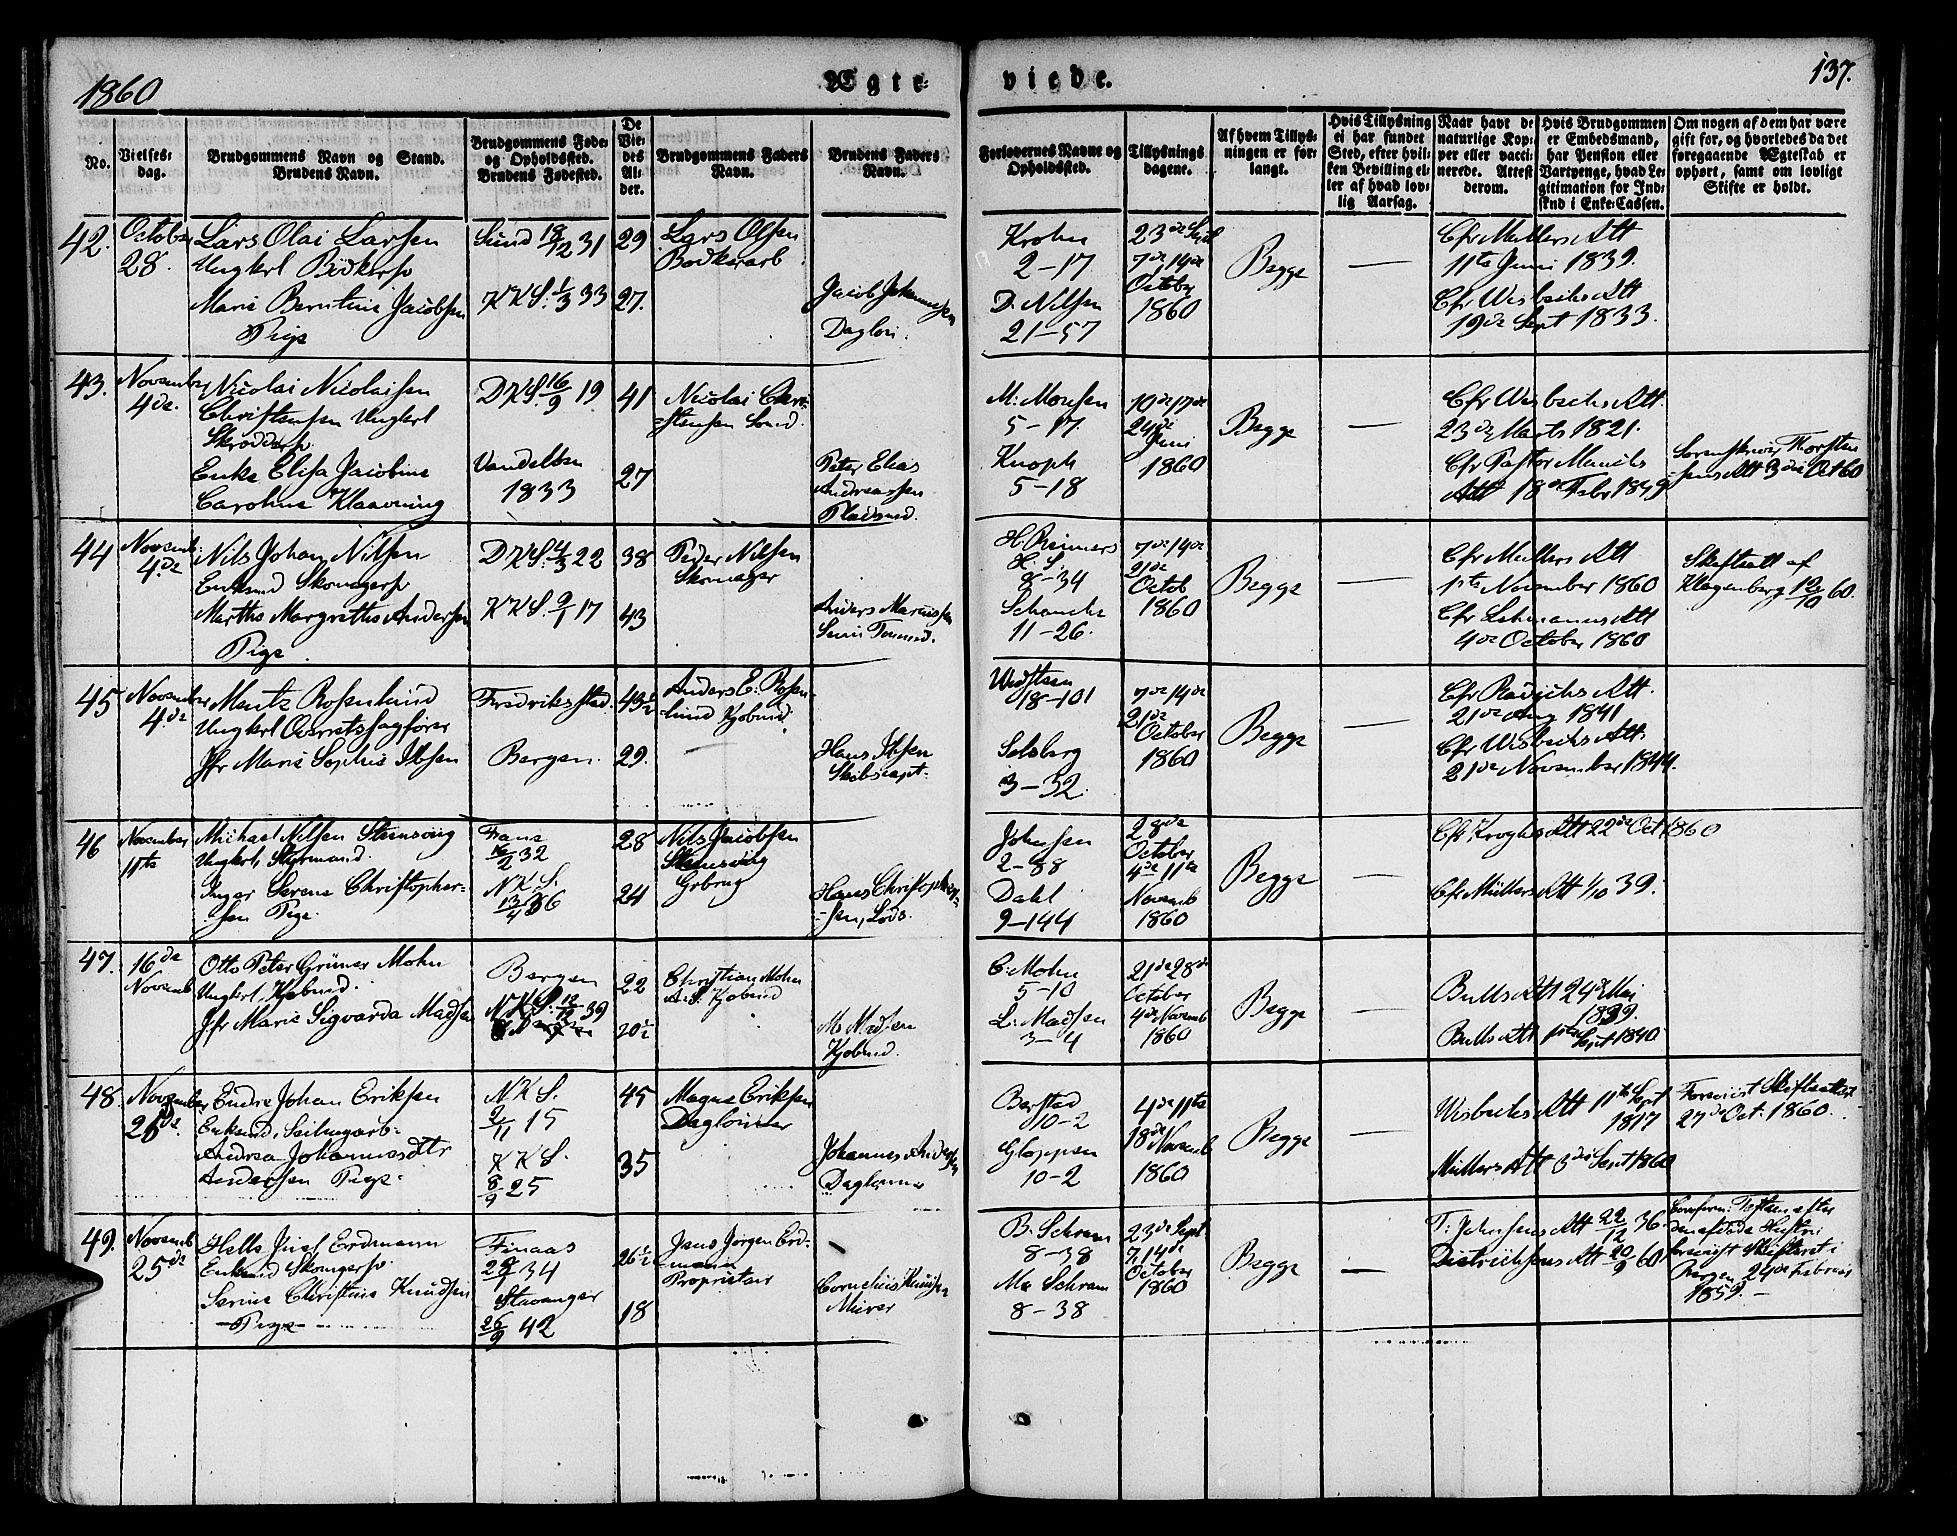 1860
Ægte-
viede.
137.
No.
Vielses-
dag.
Brudgommens Navn og Stand.
Brudens Navn.
Brudgommens Føde-
og Opholdssted.
Brudens Fødested.
De
Vie-
des
Al-
der.
Brudgommens Faders
Navn.
Brudens Faders
Navn.
Forlovernes Navne og
Opholdsted.
Tillysnings
dagene.
Af hvem Tillys-
ningen er for-
langt.
Hvis Tillysning
ei har fundet
Sted, efter hvil-
ken Bevilling el-
ler af hvad lov-
lig Aarsag.
Naar havt de
naturlige Kop-
per eller vacci-
nerede. Attest
derom.
Hvis Brudgommen
er Embedsmand,
har Pension eller
Vartpenge, hvad Le-
gitimation for Ind-
skud i Enke-Cassen.
Om nogen af dem har være
gift før, og hvorledes da det
foregaaende Ægteskab er
ophørt, samt om lovligt
Skifte er holdt.
42.
October
28.
Lars Olai Larsen
Ungkrl Bödkersv
Marie Berntine Jacobsen
Pige
Sund 18/12 31
KKS. 1/3 33
29
27.
Lars Olsen
Bödkerarb
Jacob Johannessen
Daglön.
Krohn
2-17
D. Nilsen
21-57
23de Sept
7de 14de
October
1860
Begge
Cfr Mullers Att
11te Juni 1839.
Cfr Wisbechs Att
19de Sept 1833.
43.
November
4de.
Nicolai Nicolaisen
Christensen Ungkrl
Skrœddersv.
Enke Elisa Jacobine
Caroline Klaavning
DKS. 16/9 19
1833
41
27
Nicolai Chri-
stensen
Peter Elias
Andreassen
Pladsmd.
M. Monsen
5-17
Knoph
5-18
10de 17de
24de
Juni
1860
Begge
Cfr Wisbechs Att.
23de Marts 1821.
Cfr Pastor Munchs
Att 18de Febr 1849
Sorenskriver Thorsten
sens Att 3die Oct 60
44
Novemb.
4.de
Nils Johan Nilsen
Enkemd Skomagersv
Martha Margrethe Andersen
Pige.
DKS. 4/3 22
KKS. 9/1 17
38
43
Peder Nilsen
Skomager
Anders Mariussen
H. Reimers
8-34
Schancke
11-26.
7de 14de
21de
Octob
1860
Begge
Cfr Mullers Att
1ste November 1860
Cfr Lehmanns Att
4de October 1860
Skifteatt af
Klagenberg 12/10 60.
45
November
4.de
Mentz Rosenlund
Ungkrl Overretssagfører
Jfr Marie Sophie Ibsen
Fredriksstad.
Bergen.
43½
29.
Anders E. Rosen-
lund Kjøbmd.
Hans Ibsen
Skibscapt.
18-101
Solberg
3-32.
7de 14de
21de
October
1860
Begge
21de Aug 1841
Cfr Wisbechs Att.
21de November 1844.
46
November
11te
Michael Nilsen Steensvig
Ungkrl, Styrmand.
Inger Serene Christopher-
sen Pige.
Fane
16/2 32
NKS.
13/4 36
28
24
Nils Jacobsen
Steensvig
Grbrug
Hans Christopher-
-sen, Lods.
Johnsen
2-88
Dahl
9-144
28de
October
4de 11te
Novemb
1860
Begge
Cfr Kroghs Att 22de Oct 1860
Cfr Müllers Att 1/10 39.
47.
16de
Novemb
Otto Peter Grüner Mohn
Ungkrl, Kjøbmd.
Jfr Marie Sigvarda Madsen
Bergen
NKS. 12/12 39
22
20½
Christian Mohn
A.S. Kjøbmd
M. Madsen
Kjøbmd.
C. Mohn
5-10
L. Madsen
3-4
21de 28de
October
4de Novemb
1860
Begge
Bulls Att 24de Mai
1839.
Bulls Att 1ste Sept 1840
48.
November
25de.
Endre Johan Eriksen
Enkemd, Seilmagarb.
Andrea Johannesdtr
Andersen Pige.
NKS.
9/11 15
KKS.
8/9 25
45
35
Magne Eriksen
Daglönner
Johannes Andersen
Daglönner
Berstad
10-2
Gloppen
10-2
4de 11te
18de Novemb
1860
Begge
Wisbechs Att 11te Sept
1817
Müllers Att 3die Sept 1860
Foreviist Skifteattest
27de Oct. 1860.
49.
Novemb
25de
Helle Juel Erdmann
Enkemd Skomgersv.
Serine Christine Knudsen
-Pige-
Finaas
34
Stavanger
26/9 42
26½
18
Jens Jørgen Erd-
mann
Proprietair
Cornelius Knudsen
Murer
B. Schram
8-38
Ma Schram
8-38
23de Sept.
7, 14de
October
1860
Begge
T. Johnsens Att 22/12 36.
Distrikslæges Att 20/9 60
den afdöde Hustru
foreviist Skifteret i
Bergen 24de Februar
1859.